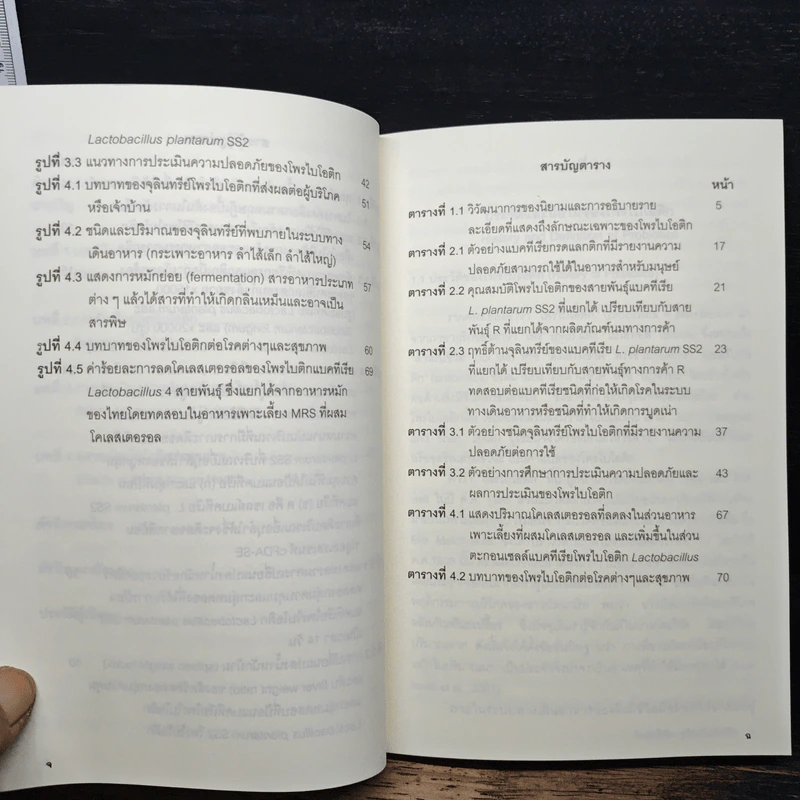 Lactobacillus plantarum SS2
รูปที่ 3.3 แนวทางการประเมินความปลอดภัยของโพรไบโอติก 42
รูปที่ 4.1 บทบาทของจุลินทรีย์โพรไบโอติกที่ส่งผลต่อผู้บริโภค 51
หรือเจ้าบ้าน
รูปที่ 4.2 ชนิดและปริมาณของจุลินทรีย์ที่พบภายในระบบทาง 54
เดินอาหาร (กระเพาะอาหาร ลำไส้เล็ก ลำไส้ใหญ่)
รูปที่ 4.3 แสดงการหมักย่อย (fermentation) สารอาหารประเภท 57
ต่าง ๆ แล้วได้สารที่ทำให้เกิดกลิ่นเหม็นและอาจเป็น
สารพิษ
รูปที่ 4.4 บทบาทของโพรไบโอติกต่อโรคต่างๆและสุขภาพ 60
รูปที่ 4.5 ค่าร้อยละการลดโคเลสเตอรอลของโพรไบติกแบคทีเรีย 69
Lactobacillus 4 สายพันธุ์ ซึ่งแยกได้จากอาหารหมัก
ของไทยโดยทดสอบในอาหารเพาะเลี้ยง MRS ที่ผสม
โคเลสเตอรอล
จ
สารบัญตาราง
หน้า
ตารางที่ 1.1 วิวัฒนาการของนิยามและการอธิบายราย 5
ละเอียดที่แสดงถึงลักษณะเฉพาะของโพรไบโอติก
ตารางที่ 2.1 ตัวอย่างแบคทีเรียกรดแลกติกที่มีรายงานความ 17
ปลอดภัยสามารถใช้ได้ในอาหารสำหรับมนุษย์
ตารางที่ 2.2 คุณสมบัติโพรไบโอติกของสายพันธุ์แบคทีเรีย 21
L. plantarum SS2 ที่แยกได้ เปรียบเทียบกับสาย
พันธุ์ R ที่แยกได้จากผลิตภัณฑ์นมทางการค้า
ตารางที่ 2.3 ฤทธิ์ต้านจุลินทรีย์ของแบคทีเรีย L. plantarum SS2 23
ที่แยกได้ เปรียบเทียบกับสายพันธุ์ทางการค้า R
ทดสอบต่อแบคทีเรียชนิดที่ก่อให้เกิดโรคในระบบ
ทางเดินอาหารหรือชนิดที่ทำให้เกิดการบูดเน่า
ตารางที่ 3.1 ตัวอย่างชนิดจุลินทรีย์โพรไบโอติกที่มีรายงานความ 37
ปลอดภัยต่อการใช้
ตารางที่ 3.2 ตัวอย่างการศึกษาการประเมินความปลอดภัยและ 43
ผลการประเมินของโพรไบโอติก
ตารางที่ 4.1 แสดงปริมาณโคเลสเตอรอลที่ลดลงในส่วนอาหาร 67
เพาะเลี้ยงที่ผสมโคเลสเตอรอล และเพิ่มขึ้นในส่วน
ตะกอนเซลล์แบคทีเรียโพรไบโอติก Lactobacillus
ตารางที่ 4.2 บทบาทของโพรไบโอติกต่อโรคต่างๆและสุขภาพ 70
ฉ